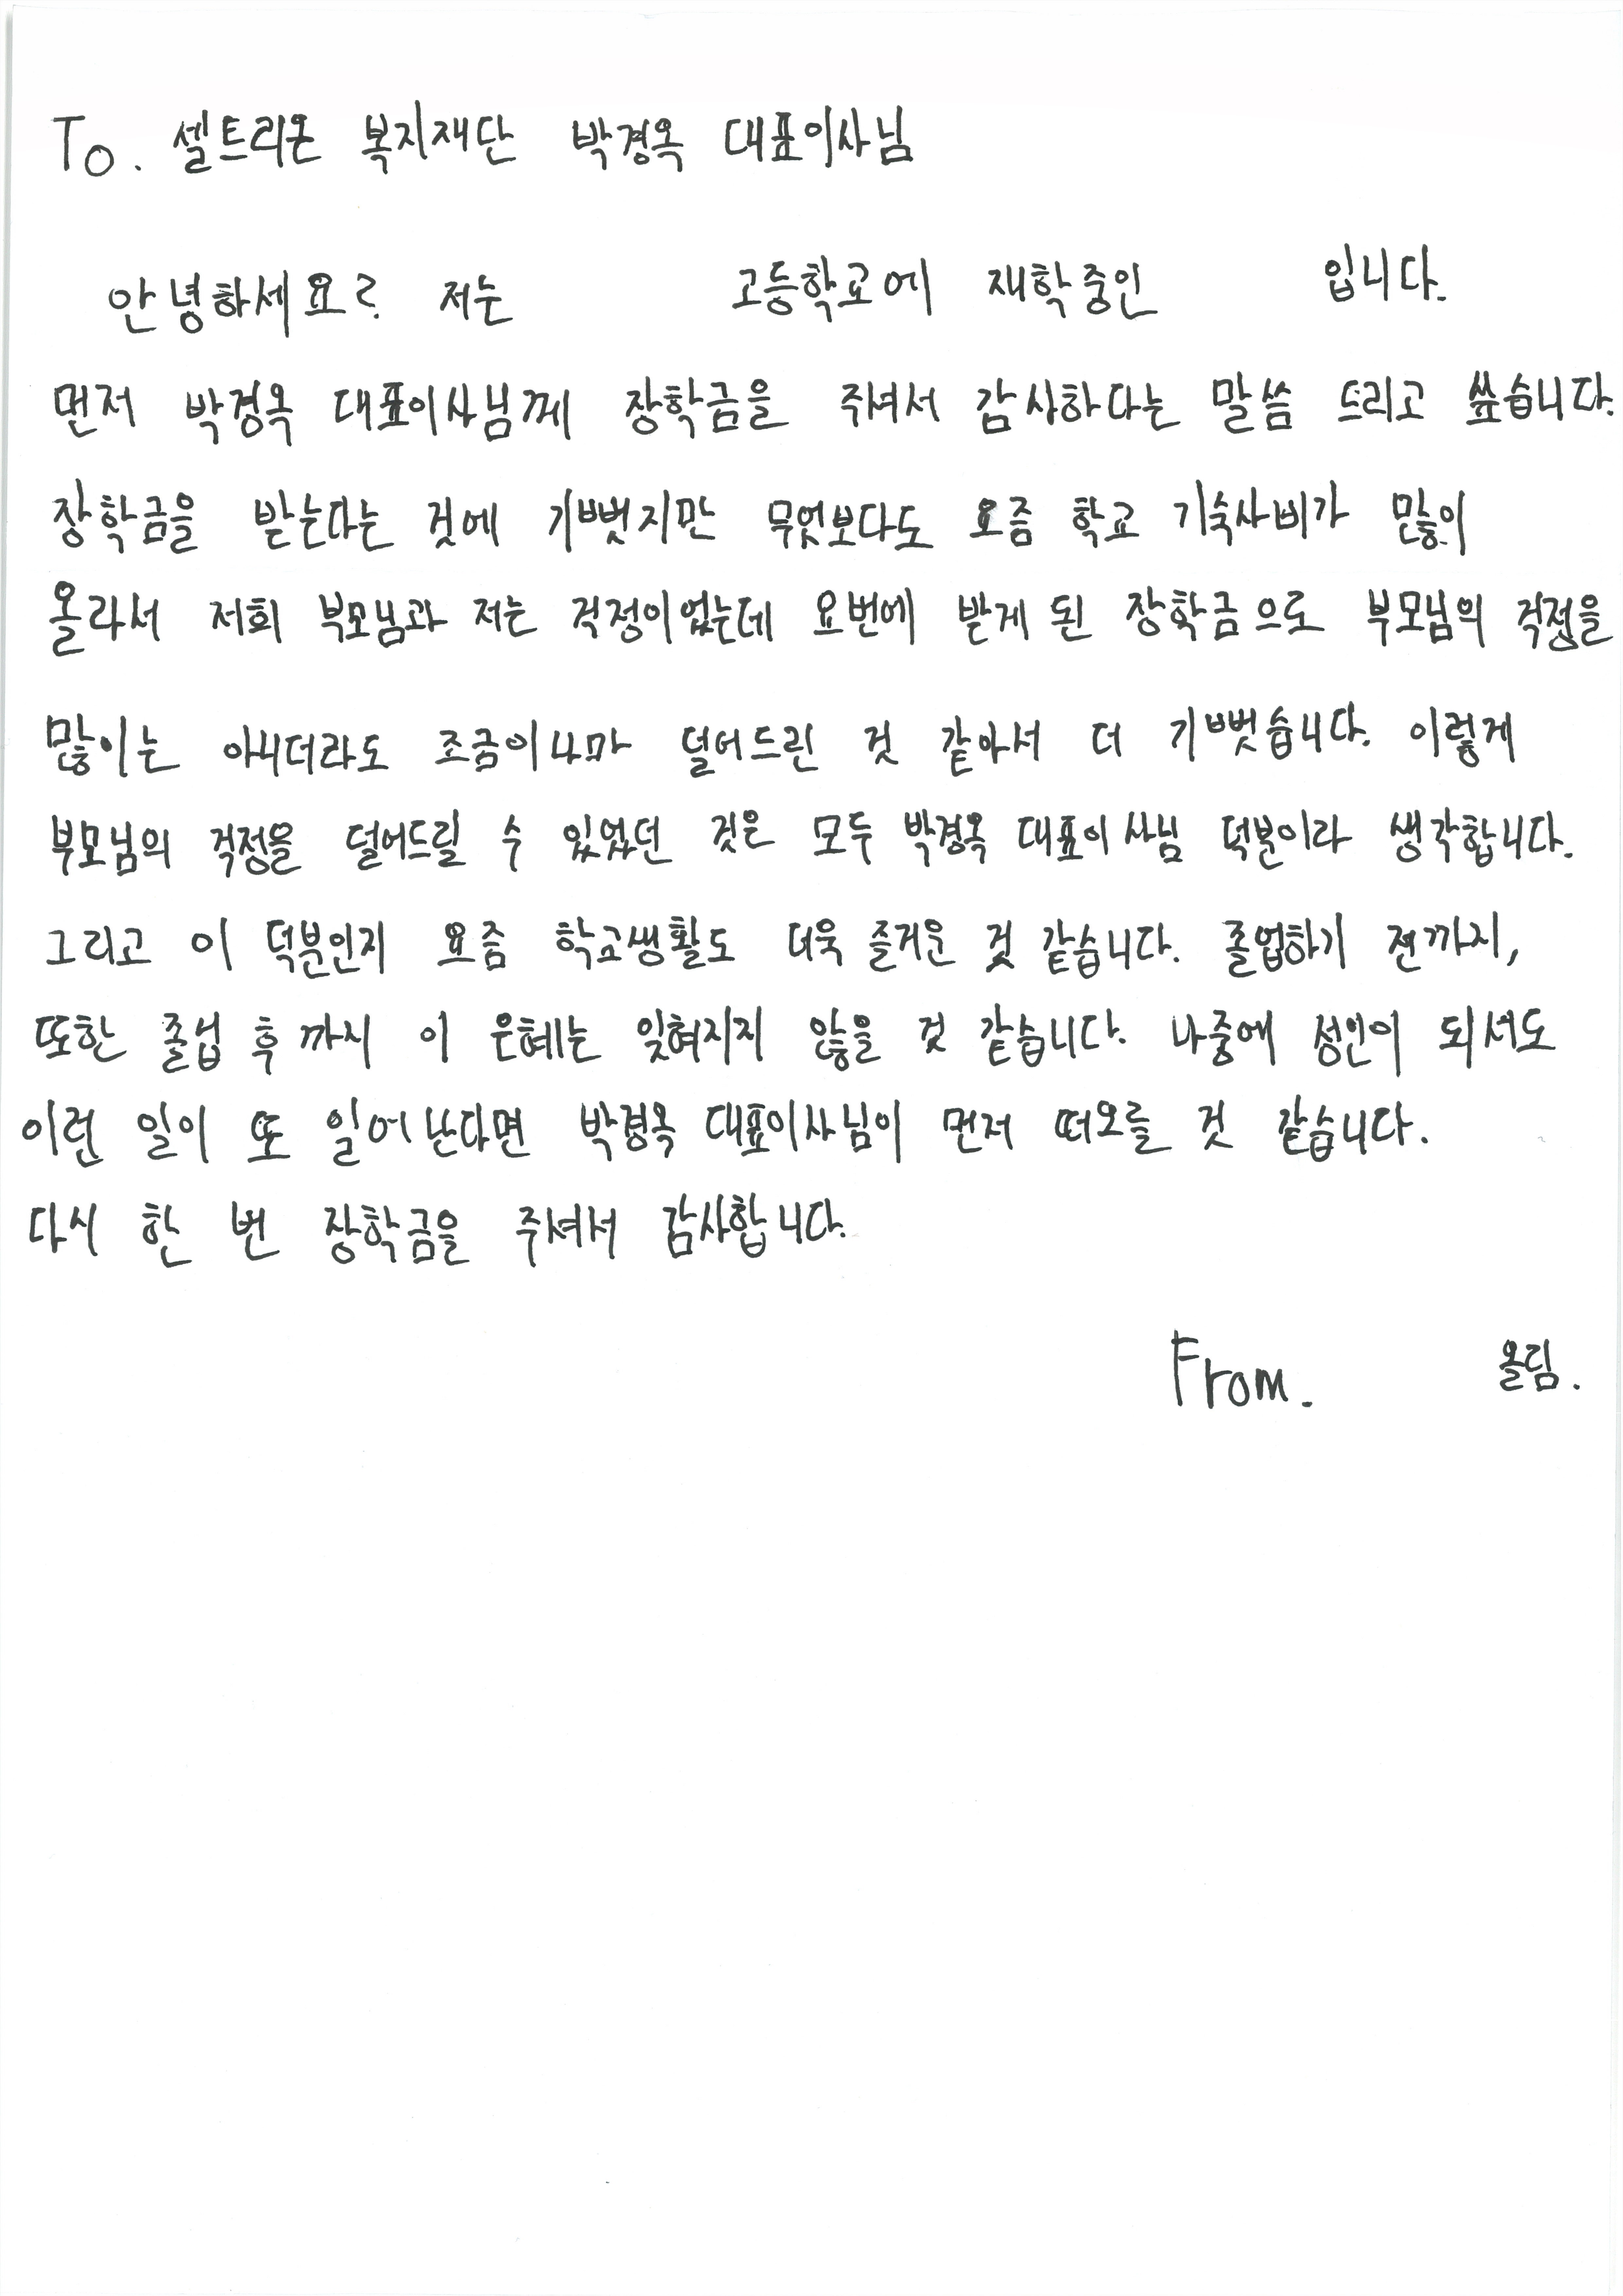 To. 셀트리온 복지재단 박경옥 대표이사님
안녕하세요? 저는 고등학교에 재학중인 입니다.
먼저 박경옥 대표이사님께 장학금을 주셔서 감사하다는 말씀 드리고 싶습니다.
장학금을 받는다는 것에 기뻤지만 무엇보다도 요즘 학교 기숙사비가 많이
올라서 저희 부모님과 저는 걱정이었는데 요번에 받게 된 장학금으로 부모님의 걱정을
많이는 아니더라도 조금이나마 덜어드린 것 같아서 더 기뻤습니다. 이렇게
부모님의 걱정을 덜어드릴 수 있었던 것은 모두 박경옥 대표이사님 덕분이라 생각합니다.
그리고 이 덕분인지 요즘 학교생활도 더욱 즐거운 것 같습니다. 졸업하기 전까지,
또한 졸업 후 까지 이 은혜는 잊혀지지 않을 것 같습니다. 나중에 성인이 되서도
이런 일이 또 일어난다면 박경옥 대표이사님이 먼저 떠오를 것 같습니다.
다시 한 번 장학금을 주셔서 감사합니다.
From. 올림.